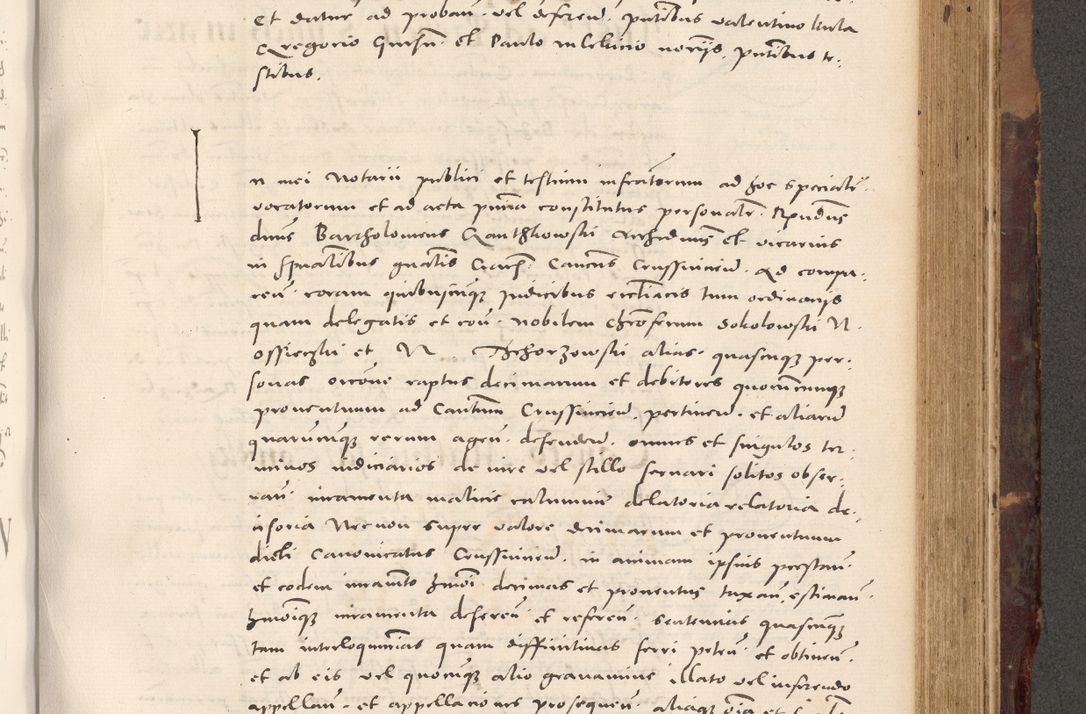 et datur ad proban̄ vel deferen̄. pn̄tibus valentino Kula
Gregorio et Paulo notariis. pn̄tibus te-
stibus.
In mei Notarii publici et testium infrascr̄torum ad hoc speciali-
vocatorum et ad acta pn̄tia constitutus personalr̄. Rn̄dus
dn̄us Bartholomeus Ganthkowski Archidn̄us et vicarius
in sp̄ualibus gn̄alis Canc̄us Crussvicien̄. Ad compa-
ren̄. coram quibuscunq̨ Judicibus eccl̄iacis tam ordinariis
quam delegatis et con̄. nobilem Cristoferum Sokolowski N.
Ossieczki et N Thchorzowski alias. quascunq̨ per-
sonas occ̄one raptus decimarum et debitores quorumcunq̨
proventuum ad Can̄tum Crussvicien̄. pertinen̄. et aliarū
quarumcunq̨ rerum agen̄. defenden̄. omnes et singulos ter-
minos iudiciarios de iure vel stillo servari solitos obser-
van̄. iuramenta malicie calumnie delatoria relatoria de-
cisoria Necnon super valore decimarum et proventuum
dicti Canonicatus Crussvicien̄. in animam ipsius prestan̄
et eodem iuram̄to hm̄oi decimas et proventus taxan̄. estiman̄.
hm̄oiq̨ iuramenta deferen̄. et referen̄. sententias quascunq̨
tam interloqutorias quam diffinitivas ferri peten̄. et obtinen̄.
et ab eis vel quocunq̨ alio gravamine illato vel inferendo
appellan̄. et appellaciones prosequen̄. aliaq̨ om̄ia et